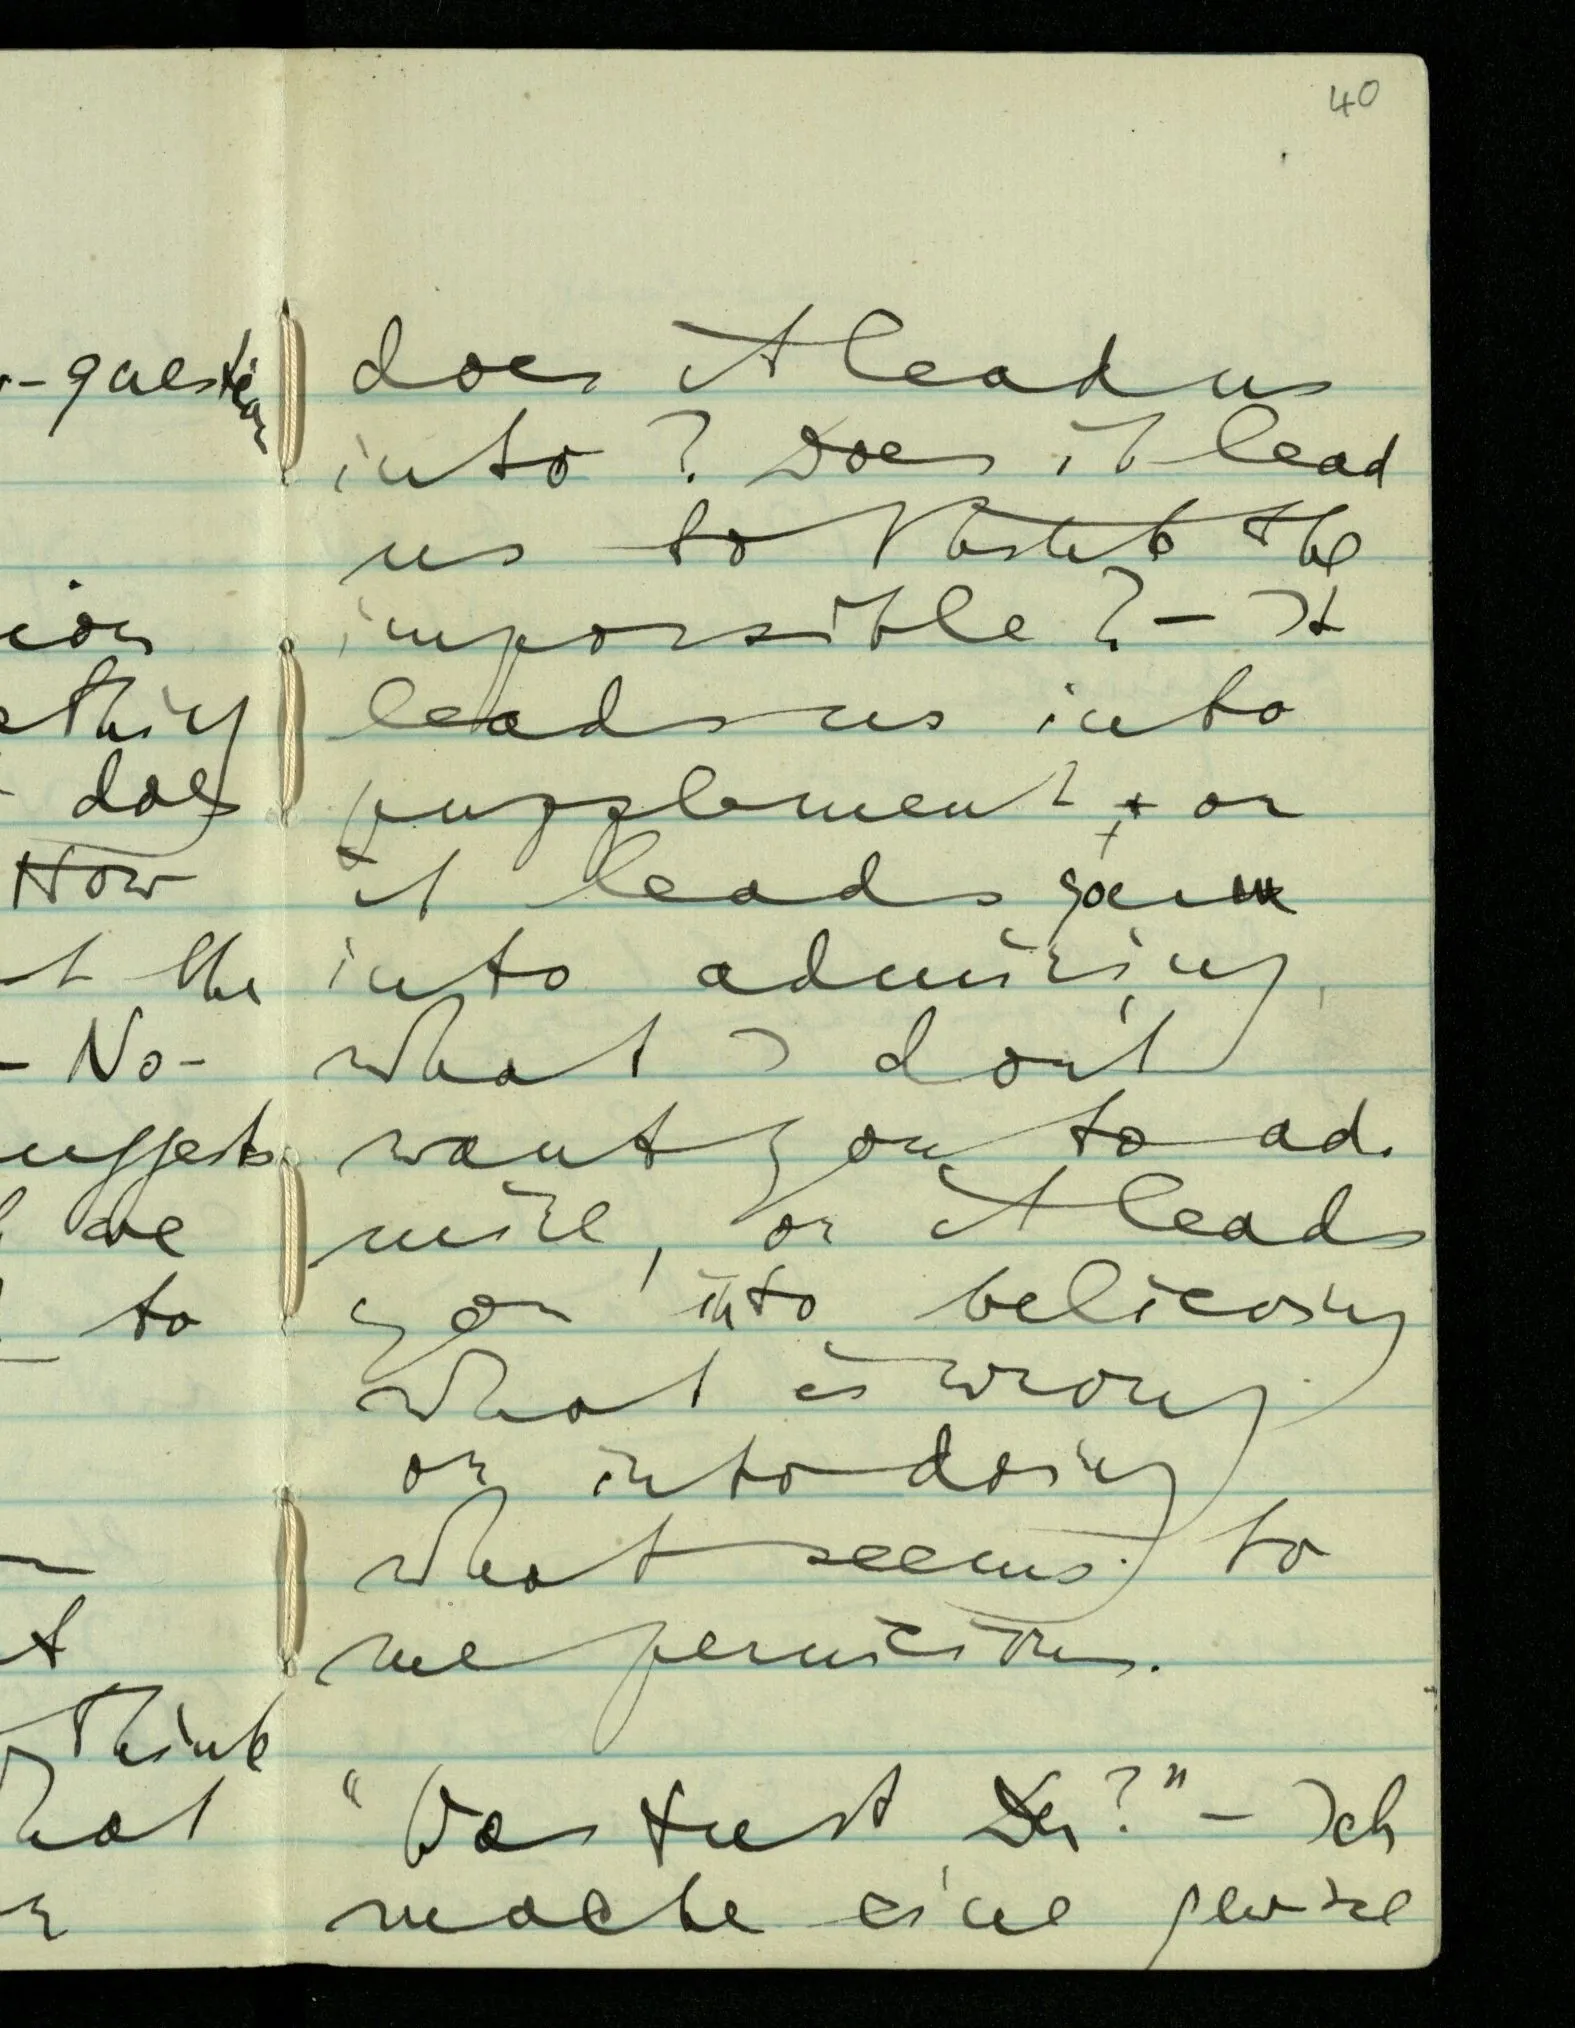 -question
ion
thing
does
How
t the
– No –
uggests
we
to
t
think
hat
40
does it lead us
into? Does it lead
us to the
impossible? – It
leads us into
puzzlement, or
it leads you
into admiring,
what I don't
want you to ad-
mire, or it leads
you into believing
what is wrong
or into doing
what seems to
me pernicious.
"Was tust Du?" – Ich
mache eine gewisse